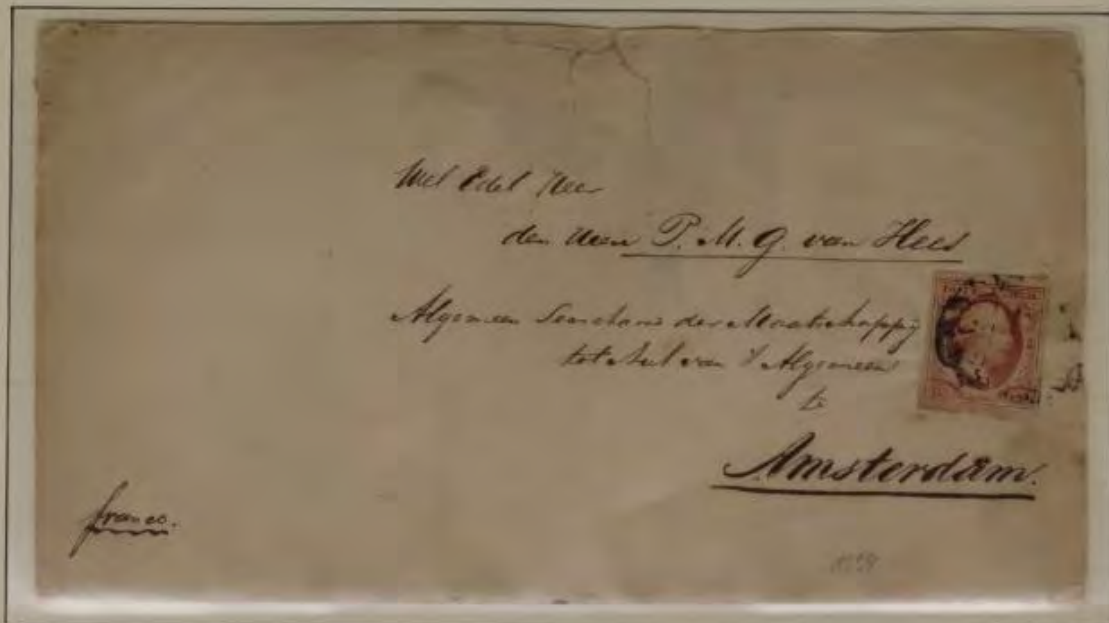 Wel Edel Heer
den Heer P. M. G. van Hees
Algemeen Secretaris der Maatschappij
tot Nut van 't Algemeen
te
Amsterdam.
franco.